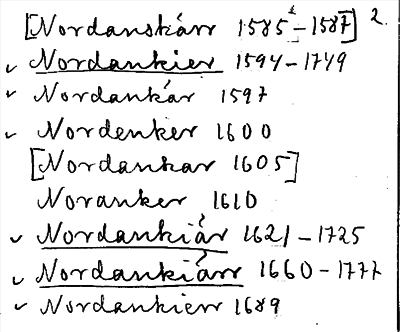 [Nordanskårr 1585–1587] 2.
✓ Nordankier 1594–1749
✓ Nordankår 1597
✓ Nordenker 1600
[Nordankar 1605]
Noranker 1610
✓ Nordankiår 1621–1725
✓ Nordankiårr 1660–1777
✓ Nordankierr 1689